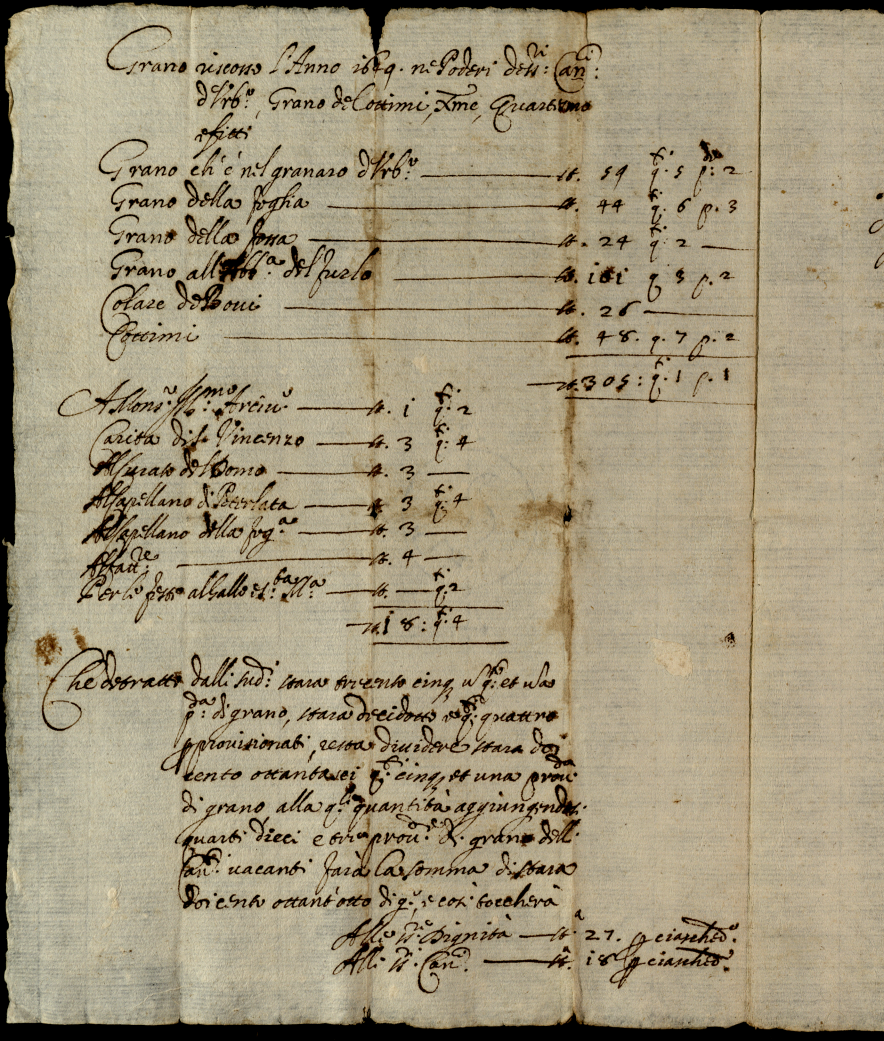 Grano riscosso l'Anno 1689. ne Poderi dess:ri Can:ci
d'Urb:o, Grano de Cottimi, Xme, Quartino
e fitti
Grano ch'è nel granaro d'Urb:o — st. 59 q:ti 5 p:de 2
Grano della foglia — st. 44 q:ti 6 p. 3
Grano della fossa — st. 24 q:ti 2 —
Grano all' Abb:a del Furlo — st. 101 q 3 p. 2
Colare de Bovi — st. 26 —
Cottimi — st. 48. q. 7 p. 2
— st. 305: q:ti 1 p. 1
A Mons:e Ill:mo Arciv:o — st. 1 q:ti 2
Carita di S. Vincenzo — st. 3 q:ti 4
Al Curato del Domo — st. 3 —
Al Capellano di Peterlata — st. 3 q:ti 4
Al Capellano della fog:a — st. 3 —
Al fatt:re — st. 4 —
Per le — st. — q:ti 2
— st. 18: q:ti 4
Che detratte dalli sud:i stara trecento cinq, u q:to et una
p:da di grano, stara dieciotto e q:ti quattro
p provisionati, resta dividere stara doi
cento ottantasei q:ti cinq, et una prov:da
di grano alla q:le quantità aggiungendosi
quarti dieci e tre prov:de di grano dell
Can:ti vacanti farà la somma di stara
doicento ottant'otto di g:o, e così toccherà
Alle ss:e Dignità — st:a 27. p ciasched:o
Alli ss:i Can:ci — st:a 18 p ciasched:o